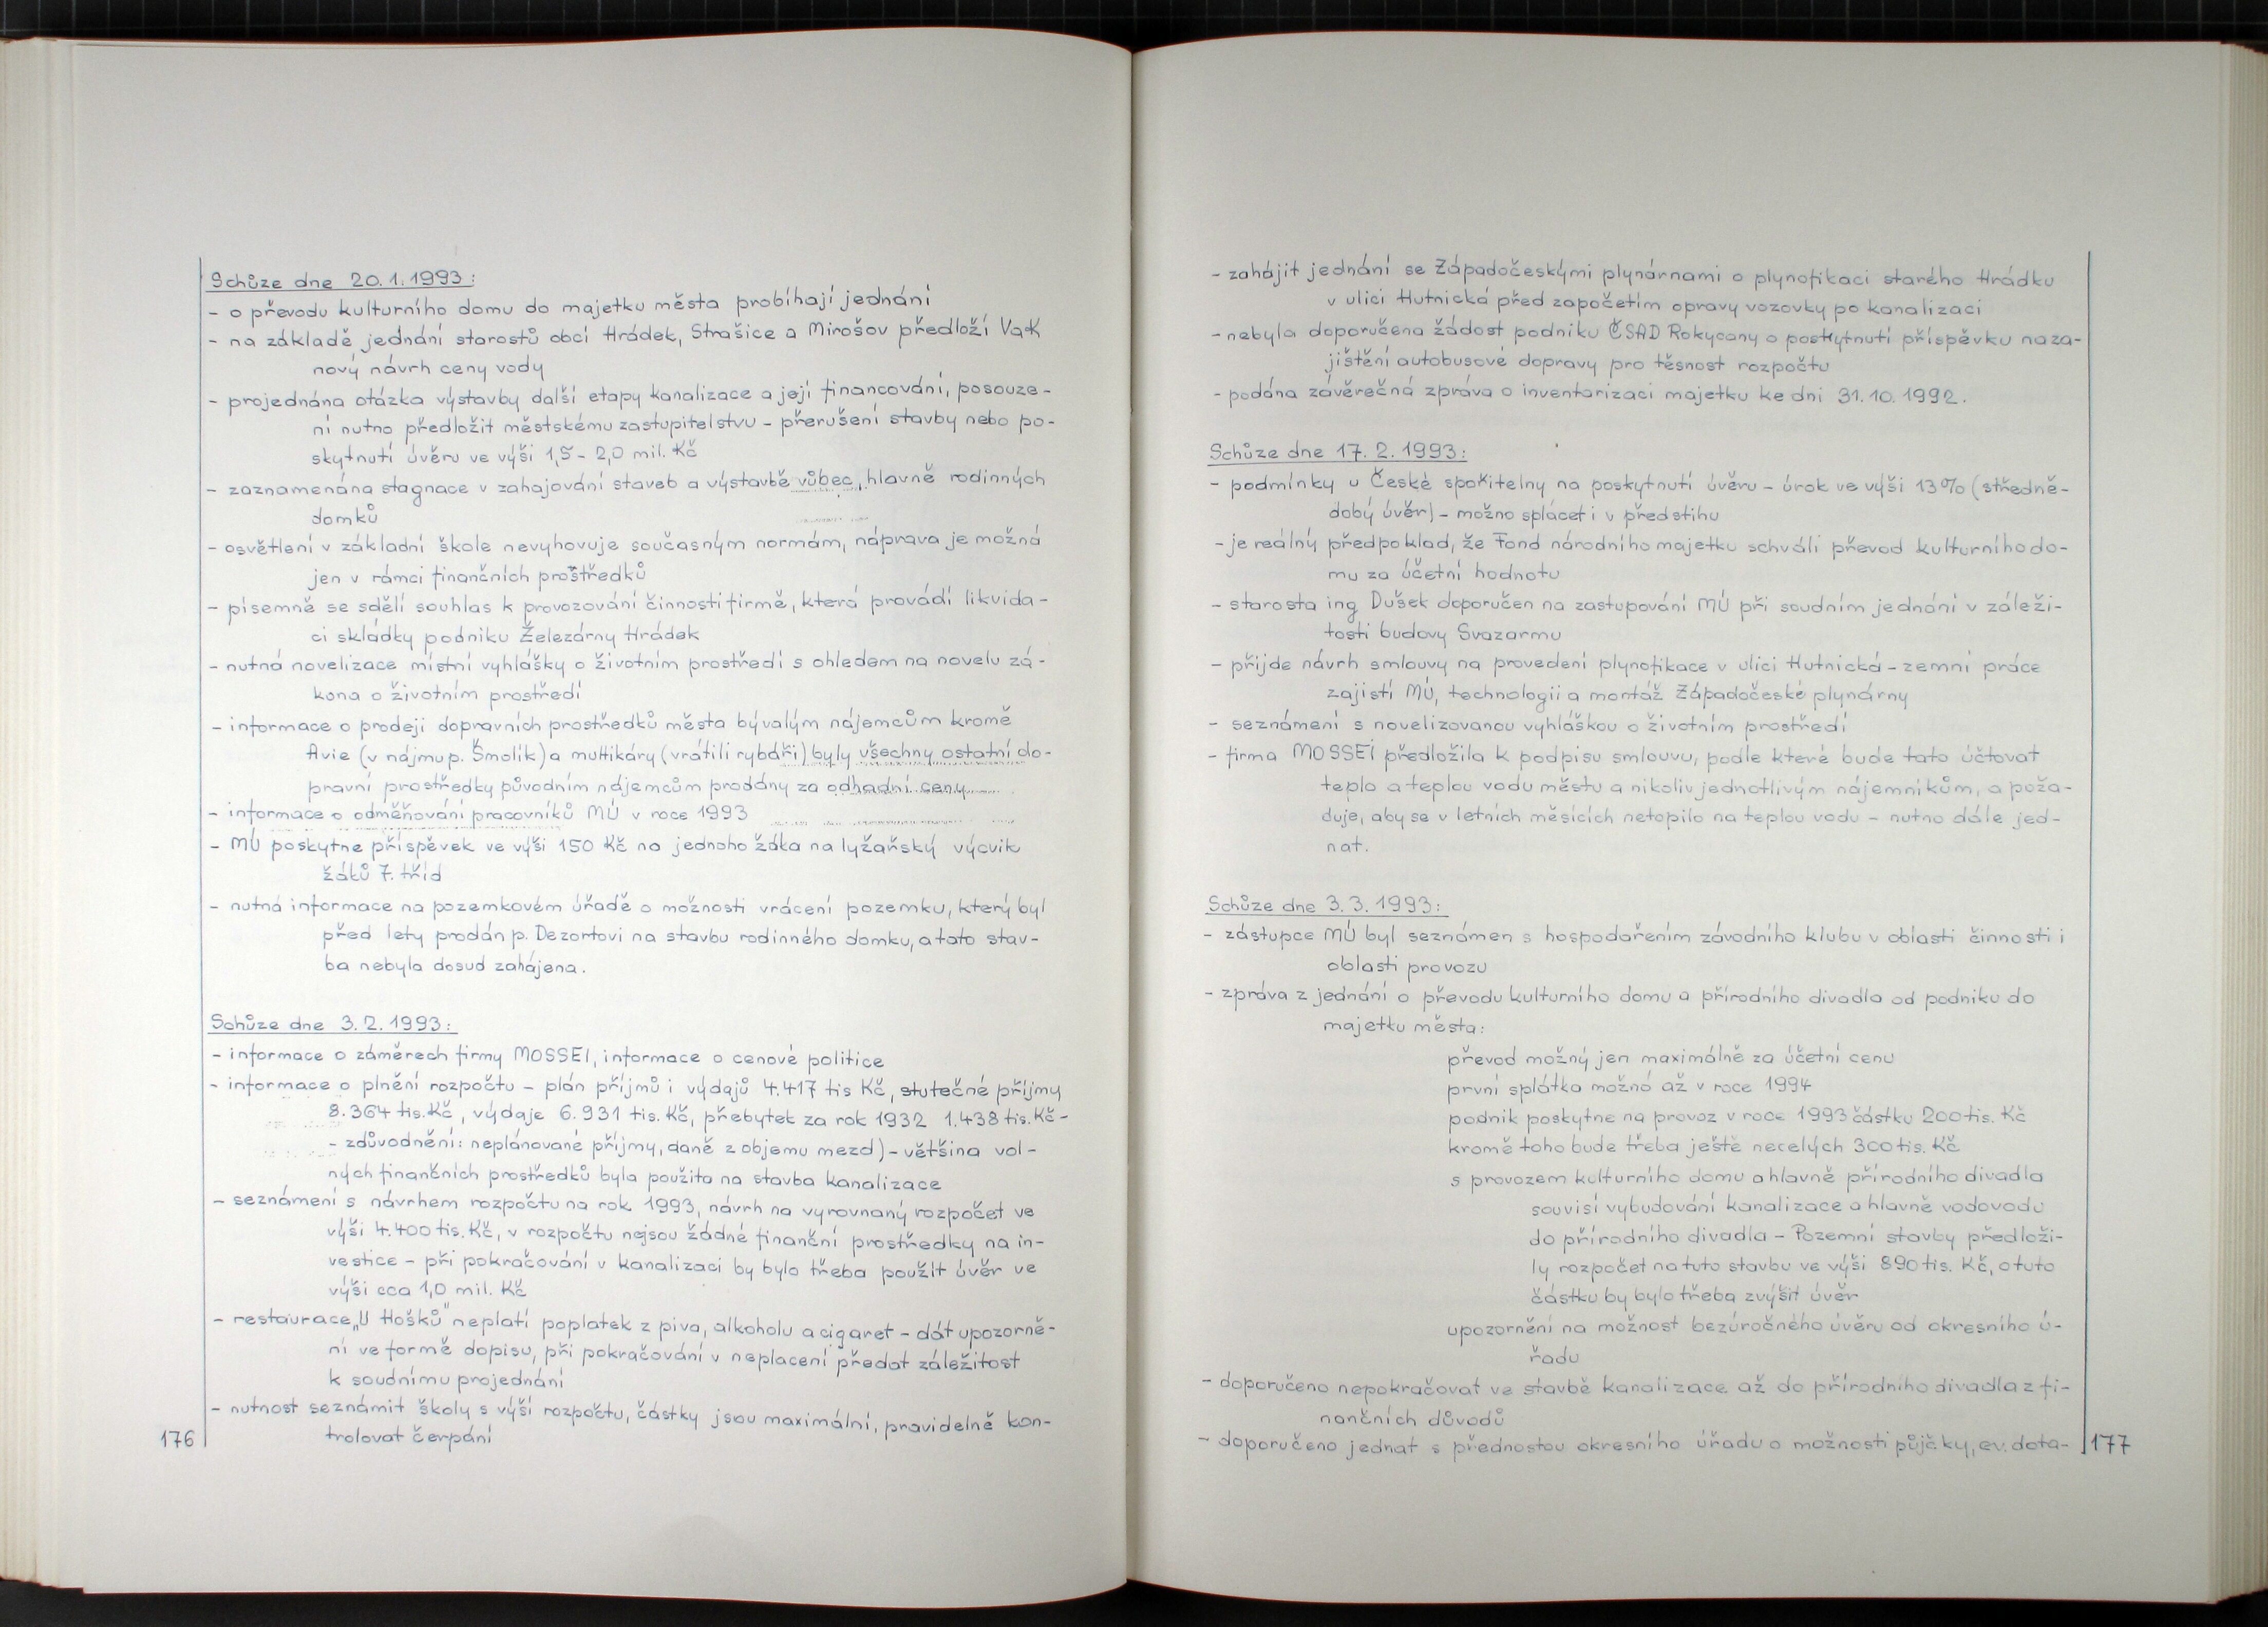 Schůze dne 20.1.1993:
- o převodu kulturního domu do majetku města probíhají jednání
- na základě jednání starostů obcí Hrádek, Strašice a Mirošov předloží VaK
nový návrh ceny vody
- projednána otázka výstavby další etapy kanalizace a její financování, posouze-
ní nutno předložit městskému zastupitelstvu - přerušení stavby nebo po-
skytnutí úvěru ve výši 1,5 - 2,0 mil. Kč
- zaznamenána stagnace v zahajování staveb a výstavbě vůbec, hlavně rodinných
domků
- osvětlení v základní škole nevyhovuje současným normám, náprava je možná
jen v rámci finančních prostředků
- písemně se sdělí souhlas k provozování činnosti firmě, která provádí likvida-
ci skládky podniku Železárny Hrádek
- nutná novelizace místní vyhlášky o životním prostředí s ohledem na novelu zá-
kona o životním prostředí
- informace o prodeji dopravních prostředků města bývalým nájemcům kromě
Avie (v nájmu p. Šmolík) a multikáry (vrátili rybáři) byly všechny ostatní do-
pravní prostředky původním nájemcům prodány za odhadní ceny
- informace o odměňování pracovníků MÚ v roce 1993
- MÚ poskytne příspěvek ve výši 150 Kč na jednoho žáka na lyžařský výcvik
žáků 7. tříd
- nutná informace na pozemkovém úřadě o možnosti vrácení pozemku, který byl
před lety prodán p. Dezortovi na stavbu rodinného domku, a tato stav-
ba nebyla dosud zahájena.
Schůze dne 3.2.1993:
- informace o záměrech firmy MOSSEI, informace o cenové politice
- informace o plnění rozpočtu - plán příjmů i výdajů 4.417 tis Kč, skutečné příjmy
8.364 tis.Kč, výdaje 6.931 tis. Kč, přebytek za rok 1932 1.438 tis.Kč -
- zdůvodnění: neplánované příjmy, daně z objemu mezd) - většina vol-
ných finančních prostředků byla použita na stavba kanalizace
- seznámení s návrhem rozpočtu na rok 1993, návrh na vyrovnaný rozpočet ve
výši 4.400 tis. Kč, v rozpočtu nejsou žádné finanční prostředky na in-
vestice - při pokračování v kanalizaci by bylo třeba použít úvěr ve
výši cca 1,0 mil. Kč
- restaurace „U Hošků" neplatí poplatek z piva, alkoholu a cigaret - dát upozorně-
ní ve formě dopisu, při pokračování v neplacení předat záležitost
k soudnímu projednání
- nutnost seznámit školy s výší rozpočtu, částky jsou maximální, pravidelně kon-
trolovat čerpání
176
- zahájit jednání se Západočeskými plynárnami o plynofikaci starého Hrádku
v ulici Hutnická před započetím opravy vozovky po kanalizaci
- nebyla doporučena žádost podniku ČSAD Rokycany o poskytnutí příspěvku na za-
jištění autobusové dopravy pro těsnost rozpočtu
- podána závěrečná zpráva o inventarizaci majetku ke dni 31.10.1992.
Schůze dne 17. 2. 1993:
- podmínky u České spořitelny na poskytnutí úvěru - úrok ve výši 13% (středně-
dobý úvěr) - možno splácet i v předstihu
- je reálný předpoklad, že Fond národního majetku schválí převod kulturního do-
mu za účetní hodnotu
- starosta ing Dušek doporučen na zastupování MÚ při soudním jednání v záleži-
tosti budovy Svazarmu
- přijde návrh smlouvy na provedení plynofikace v ulici Hutnická - zemní práce
zajistí MÚ, technologii a montáž Západočeské plynárny
- seznámení s novelizovanou vyhláškou o životním prostředí
- firma MOSSEI předložila k podpisu smlouvu, podle které bude tato účtovat
teplo a teplou vodu městu a nikoliv jednotlivým nájemníkům, a poža-
duje, aby se v letních měsících netopilo na teplou vodu - nutno dále jed-
nat.
Schůze dne 3.3.1993:
- zástupce MÚ byl seznámen s hospodařením závodního klubu v oblasti činnosti i
oblasti provozu
- zpráva z jednání o převodu kulturního domu a přírodního divadla od podniku do
majetku města:
převod možný jen maximálně za účetní cenu
první splátka možná až v roce 1994
podnik poskytne na provoz v roce 1993 částku 200 tis. Kč
kromě toho bude třeba ještě necelých 300 tis. Kč
s provozem kulturního domu a hlavně přírodního divadla
souvisí vybudování kanalizace a hlavně vodovodu
do přírodního divadla - Pozemní stavby předloži-
ly rozpočet na tuto stavbu ve výši 890 tis. Kč, o tuto
částku by bylo třeba zvýšit úvěr
upozornění na možnost bezúročného úvěru od okresního ú-
řadu
- doporučeno nepokračovat ve stavbě kanalizace až do přírodního divadla z fi-
nančních důvodů
- doporučeno jednat s přednostou okresního úřadu o možnosti půjčky, ev. dota-
177